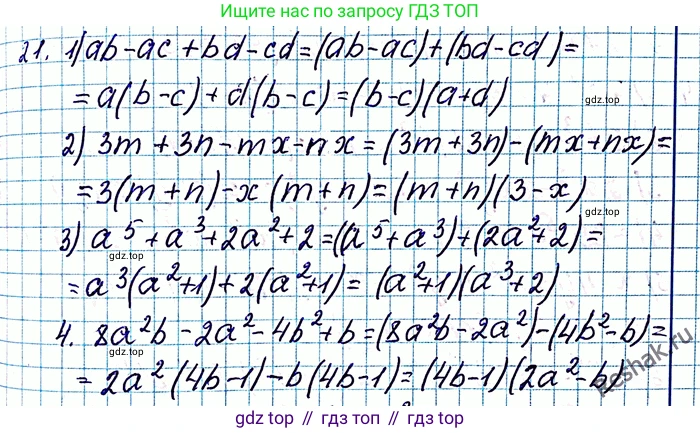 Ищите нас по запросу ГДЗ ТОП
21. 1) ab-ac+bd-cd=(ab-ac)+(bd-cd)=
=a(b-c)+d(b-c)=(b-c)(a+d)
gdz.top
gdz.top
2) 3m+3n-mx-nx=(3m+3n)-(mx+nx)=
=3(m+n)-x(m+n)=(m+n)(3-x)
gdz.top
3) a⁵+a³+2a²+2=((a⁵+a³)+(2a²+2)=
gdz.top
=a³(a²+1)+2(a²+1)=(a²+1)(a³+2)
4. 8a²b-2a²-4b²+b=(8a²b-2a²)-(4b²-b)=
gdz.top
gdz.top
=2a²(4b-1)-b(4b-1)=(4b-1)(2a²-b)
reshak.ru
gdz.top // гдз.топ // gdz.top